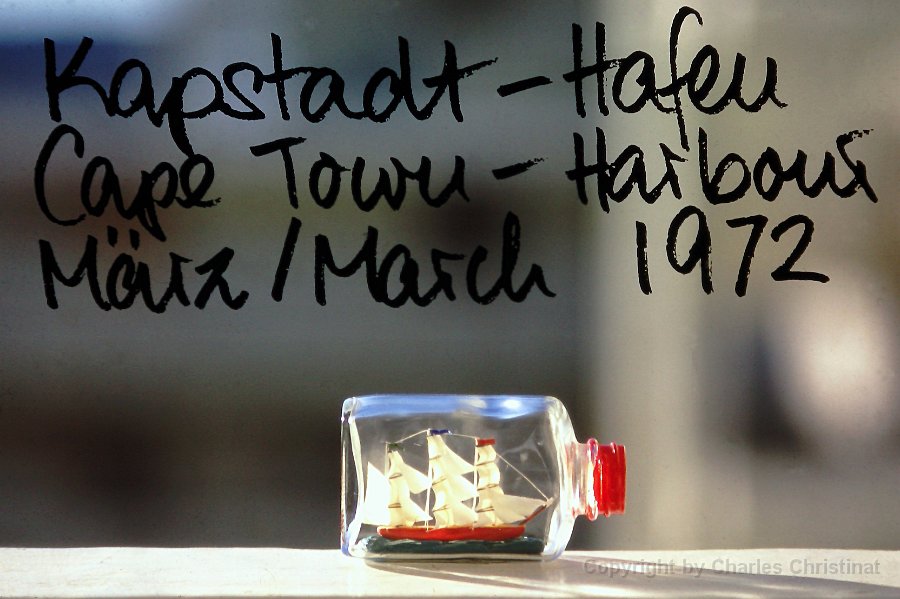 Kapstadt - Hafen
Cape Town - Harbour
März / March 1972
Copyright by Charles Christinat